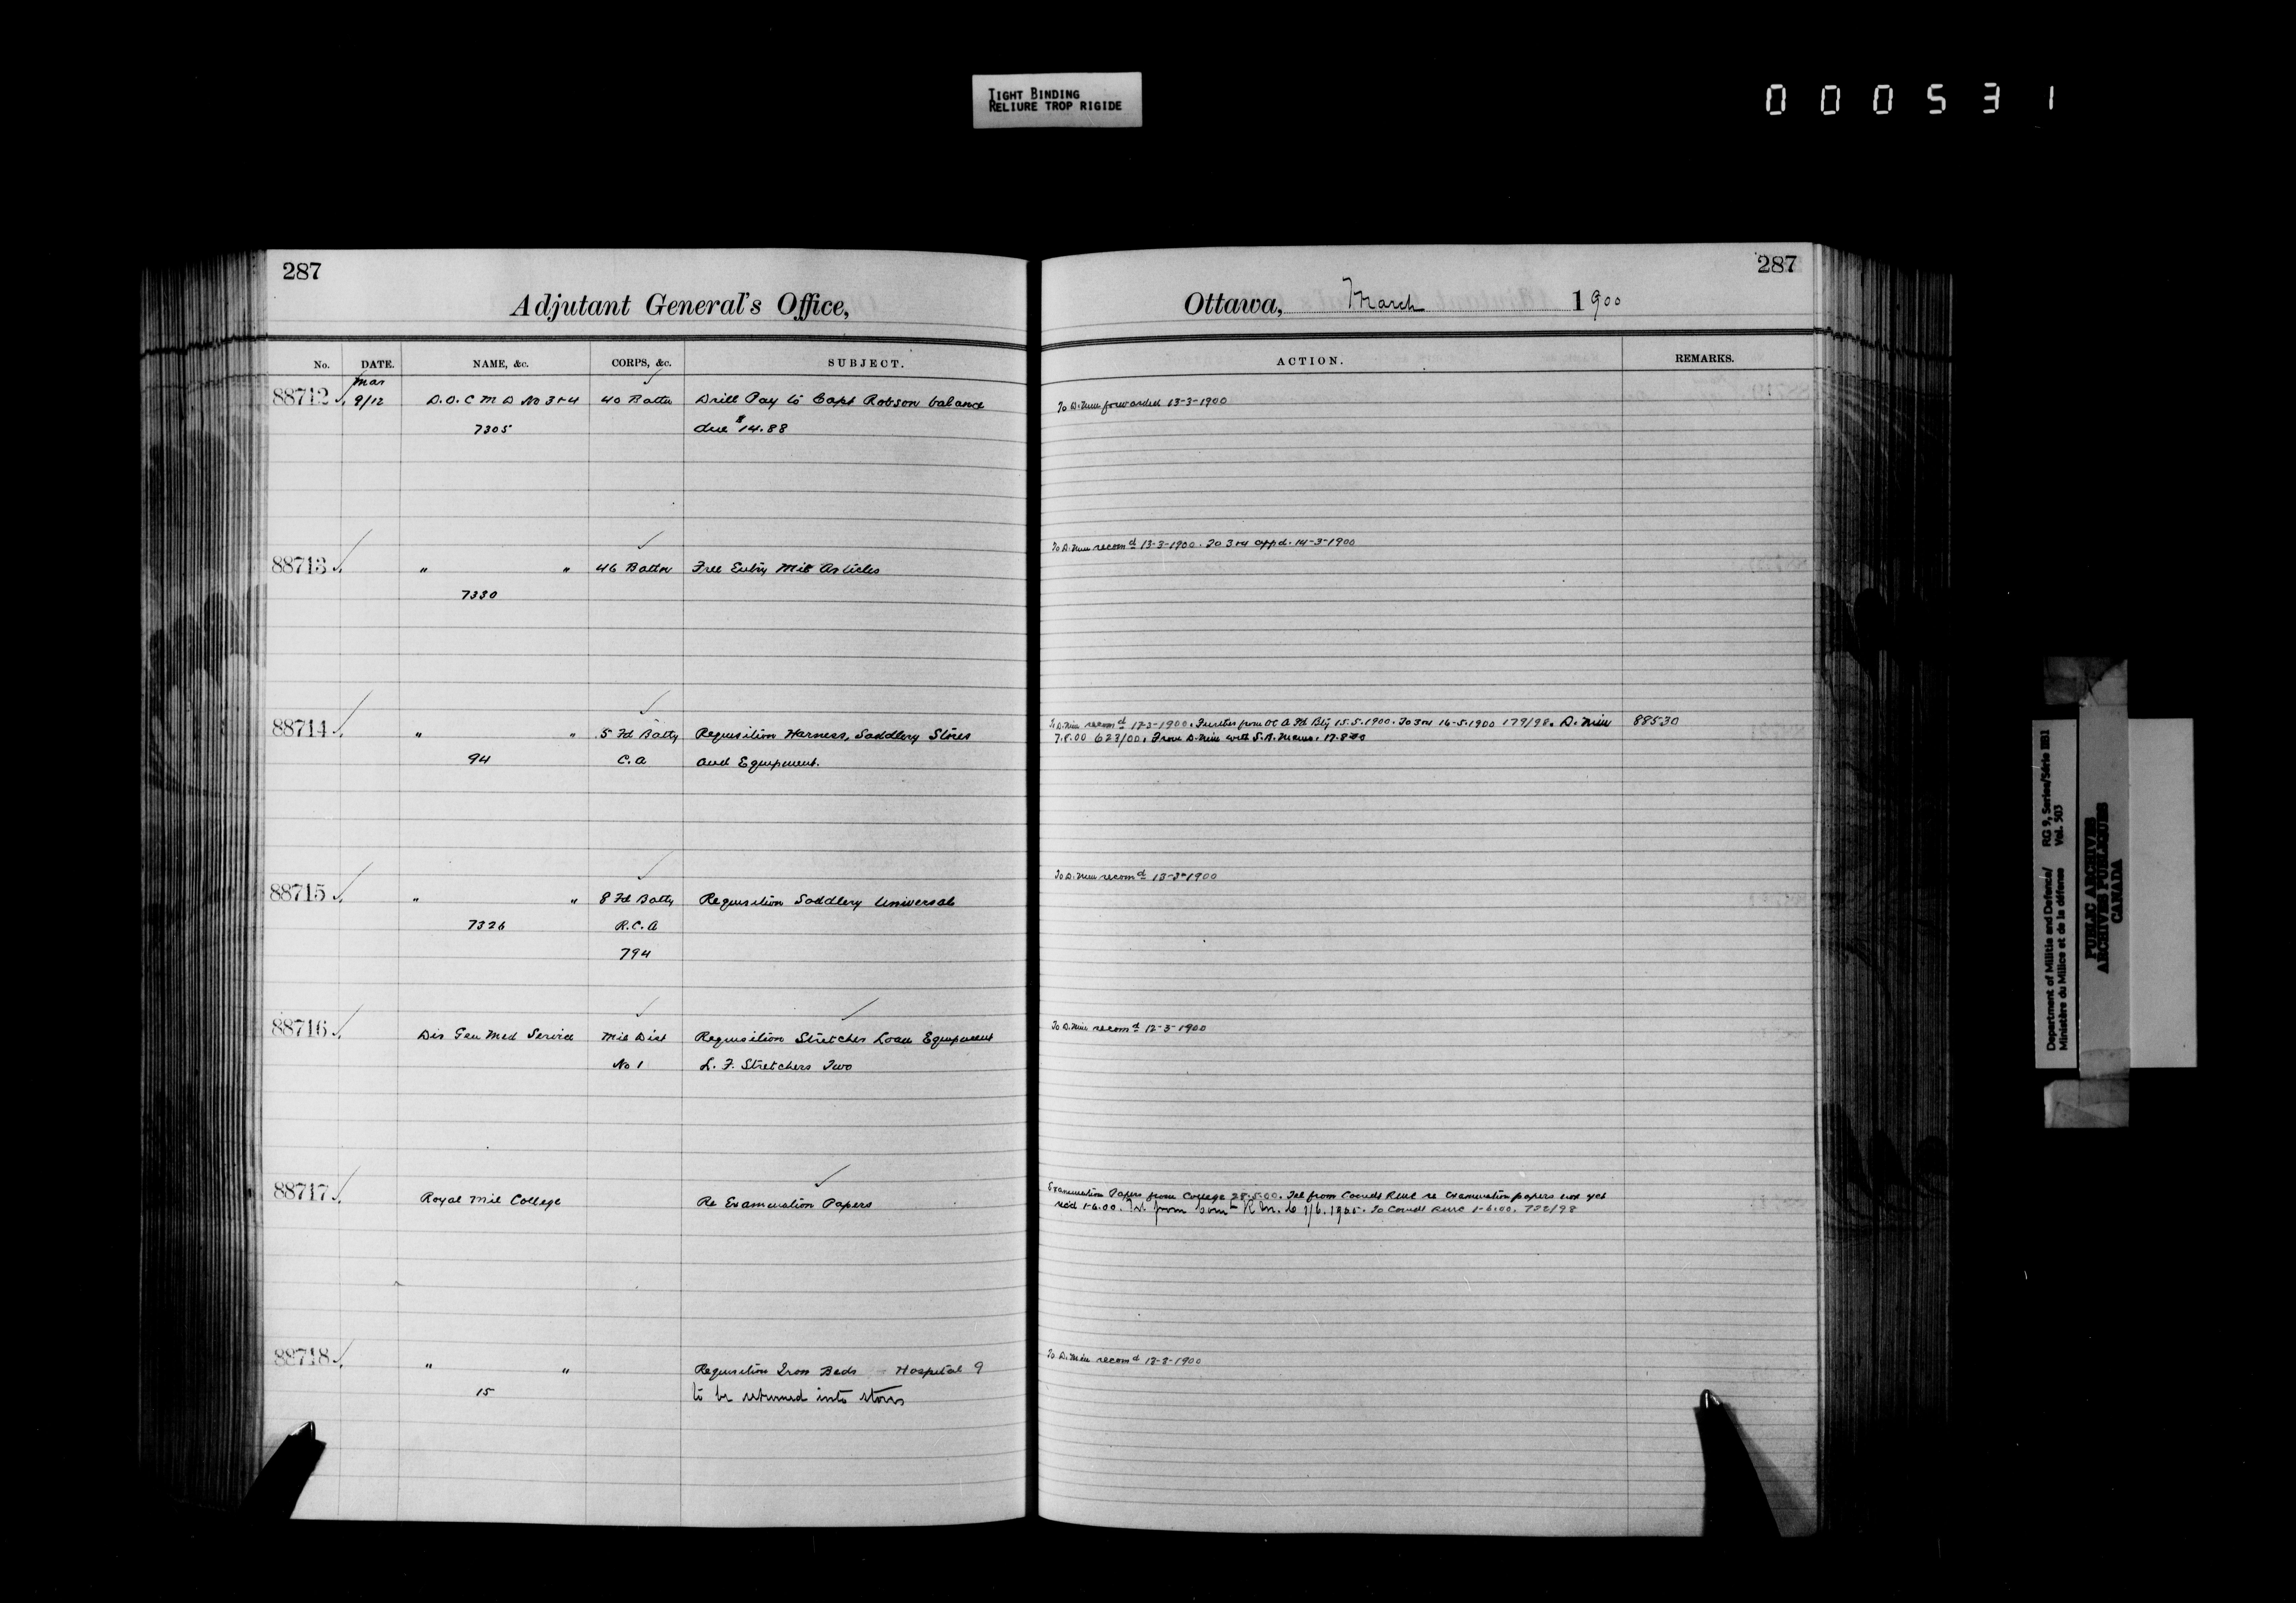 TIGHT BINDING
RELIURE TROP RIGIDE
000531
287
Adjutant General's Office,
No. DATE. NAME, &c. CORPS, &c. SUBJECT.
Mar
88712 9/12 D.O.C M D No 3+4 40 Battn Drill Pay to Capt Robson balance
7305 due $14.88
88713 " " 46 Battn Free Entry Mil Articles
7330
88714 " " 5 Fd Batty Requisition Harness, Saddlery Stores
94 C.A and Equipment.
88715 " " 8 Fd Batty Requisition Saddlery Universal
7326 R.C.A
794
88716 Dir Gen Med Service Mil Dist Requisition Stretcher Loan Equipment
No 1 L. F. Stretchers Two
88717 Royal Mil College Re Examination Papers
88718 " " Requisition Iron Beds - Hospital 9
15 to be returned into stores
287
Ottawa, March 1900
ACTION. REMARKS.
To D. Min forwarded 13-3-1900
To D. Min recomd 13-3-1900. To 3+4 appd. 14-3-1900
To D. Min recomd 12-3-1900. Further from OC A Fd Bty 15.5.1900. To 3+4 16-5.1900 179/98. D. Min 88530
7.8.00 623/00. From D. Min with S.B. Memo. 17.8.00
To D. Min recomd 13-3-1900
To D. Min recomd 12-3-1900
Examination Papers from College 28.5.00. Tel from Comdt RMC re Examination papers not yet
recd 1-6.00. Tel from Comt R.M.C 1/6.1900. To Comdt RMC 1-6.00. 732/98
To D. Min recomd 13-3-1900
Department of Militia and Defence/ RG 9, Series/Série IIB1
Ministère du Milice et de la défense Vol. 503
PUBLIC ARCHIVES
ARCHIVES PUBLIQUES
CANADA